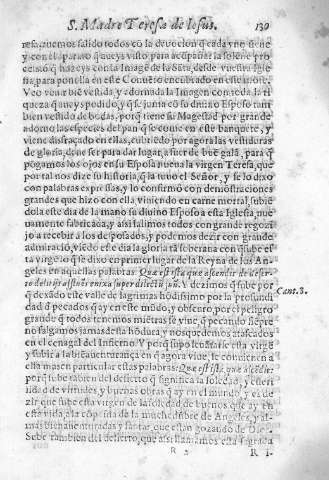 S. Madre Teresa de Iesus. 130
resa, auemos salido todos cō la deuocion q̄ cada vno tiene
y con el aparato que ays visto para acōpañar la solene pro
cession q̄ hazeys con la Image de la Sāta, desde vuestra Igle
sia, para ponella en este Conuēto encubrado en este monte.
Veo venir biē vestida, y adornada la Imagen con toda la ri
queza q̄ aueys podido, y q̄ se junta cō su diuino Esposo tam
bien vestido de bodas, porq̄ tiene su Magestad por grande
adorno las especies del pan q̄ se come en este banquete, y
viene disfraçado en ellas, cubriēdo por agora las vestiduras
de gloria, deue ser para dar lugar, a fuer de buē galā, para q̄
pōgamos los ojos en su Esposa nueua la virgen Teresa, que
por tal nos dize su historia, q̄ la tuuo el Señor, y se lo dixo
con palabras expressas, y lo confirmó con demostraciones
grandes que hizo con ella, viniendo en carne mortal, subiē
dola este dia de la mano su diuino Esposo a esta Iglesia, nue
uamente fabricada, y assi salimos todos con grande regozi
jo a recebir a los desposados, y podemos dezir con grande
admiraciō, viēdo este dia la gloria tā soberana con q̄ sube es
ta virgē lo q̄ se dixo en primer lugar de la Reyna de los An
geles en aquellas palabras. Quæ est ista quæ ascendit de deser
to delitijs affluens enixa super dilectū suū. Y dezimos q̄ sube por
Cant. 8.
q̄ dexādo este valle de lagrimas hōdissimo por la profundi
dad d̄ pecados q̄ ay en este mūdo, y obscuro, por el peligro
grande q̄ todos tenemos miētras se viue, q̄ pecando siēpre
no salgamos jamas desta hōdura, y nos quedemos atascados
en el cenagal del infierno. Y por supo leuātarse esta virgē
y subir a la bienauenturança en q̄ agora viue, se conuienen a
ella mas en particular estas palabras: Quæ est ista quæ ascēdit:
porq̄ sube tābien del desierto q̄ significa la soledad, y esteri
lidad de virtudes, y buenas obras q̄ ay en el mundo, y es de
zir que sube esta virgen de la soledad de buenos que ay en
esta vida a la cōpañia de la muchedūbre de Angeles, y al-
mas bienauenturadas y santas, que estan gozando de Dios
Sube tambien del desierto, que assi llamamos esta sagrada
R 2 R I-